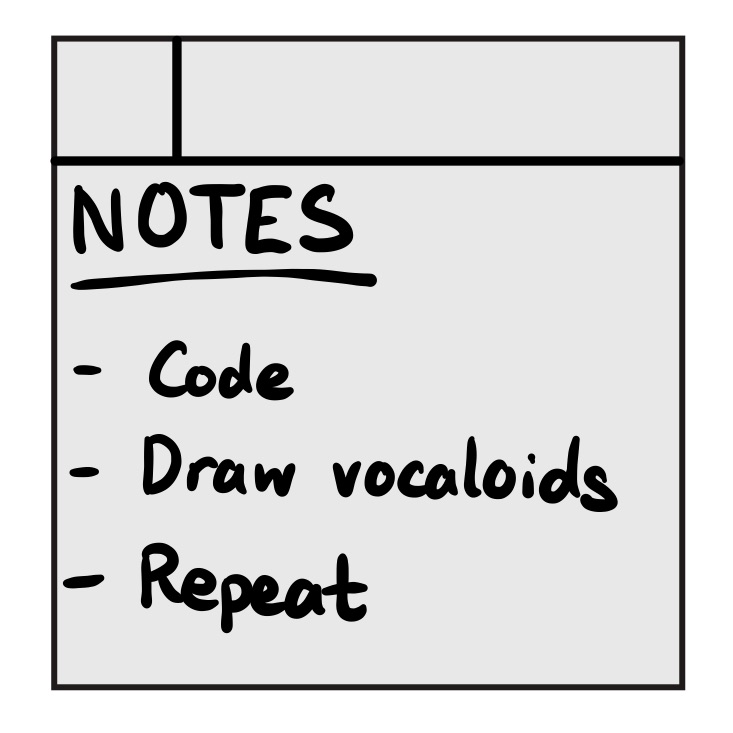 NOTES
- Code
- Draw vocaloids
- Repeat